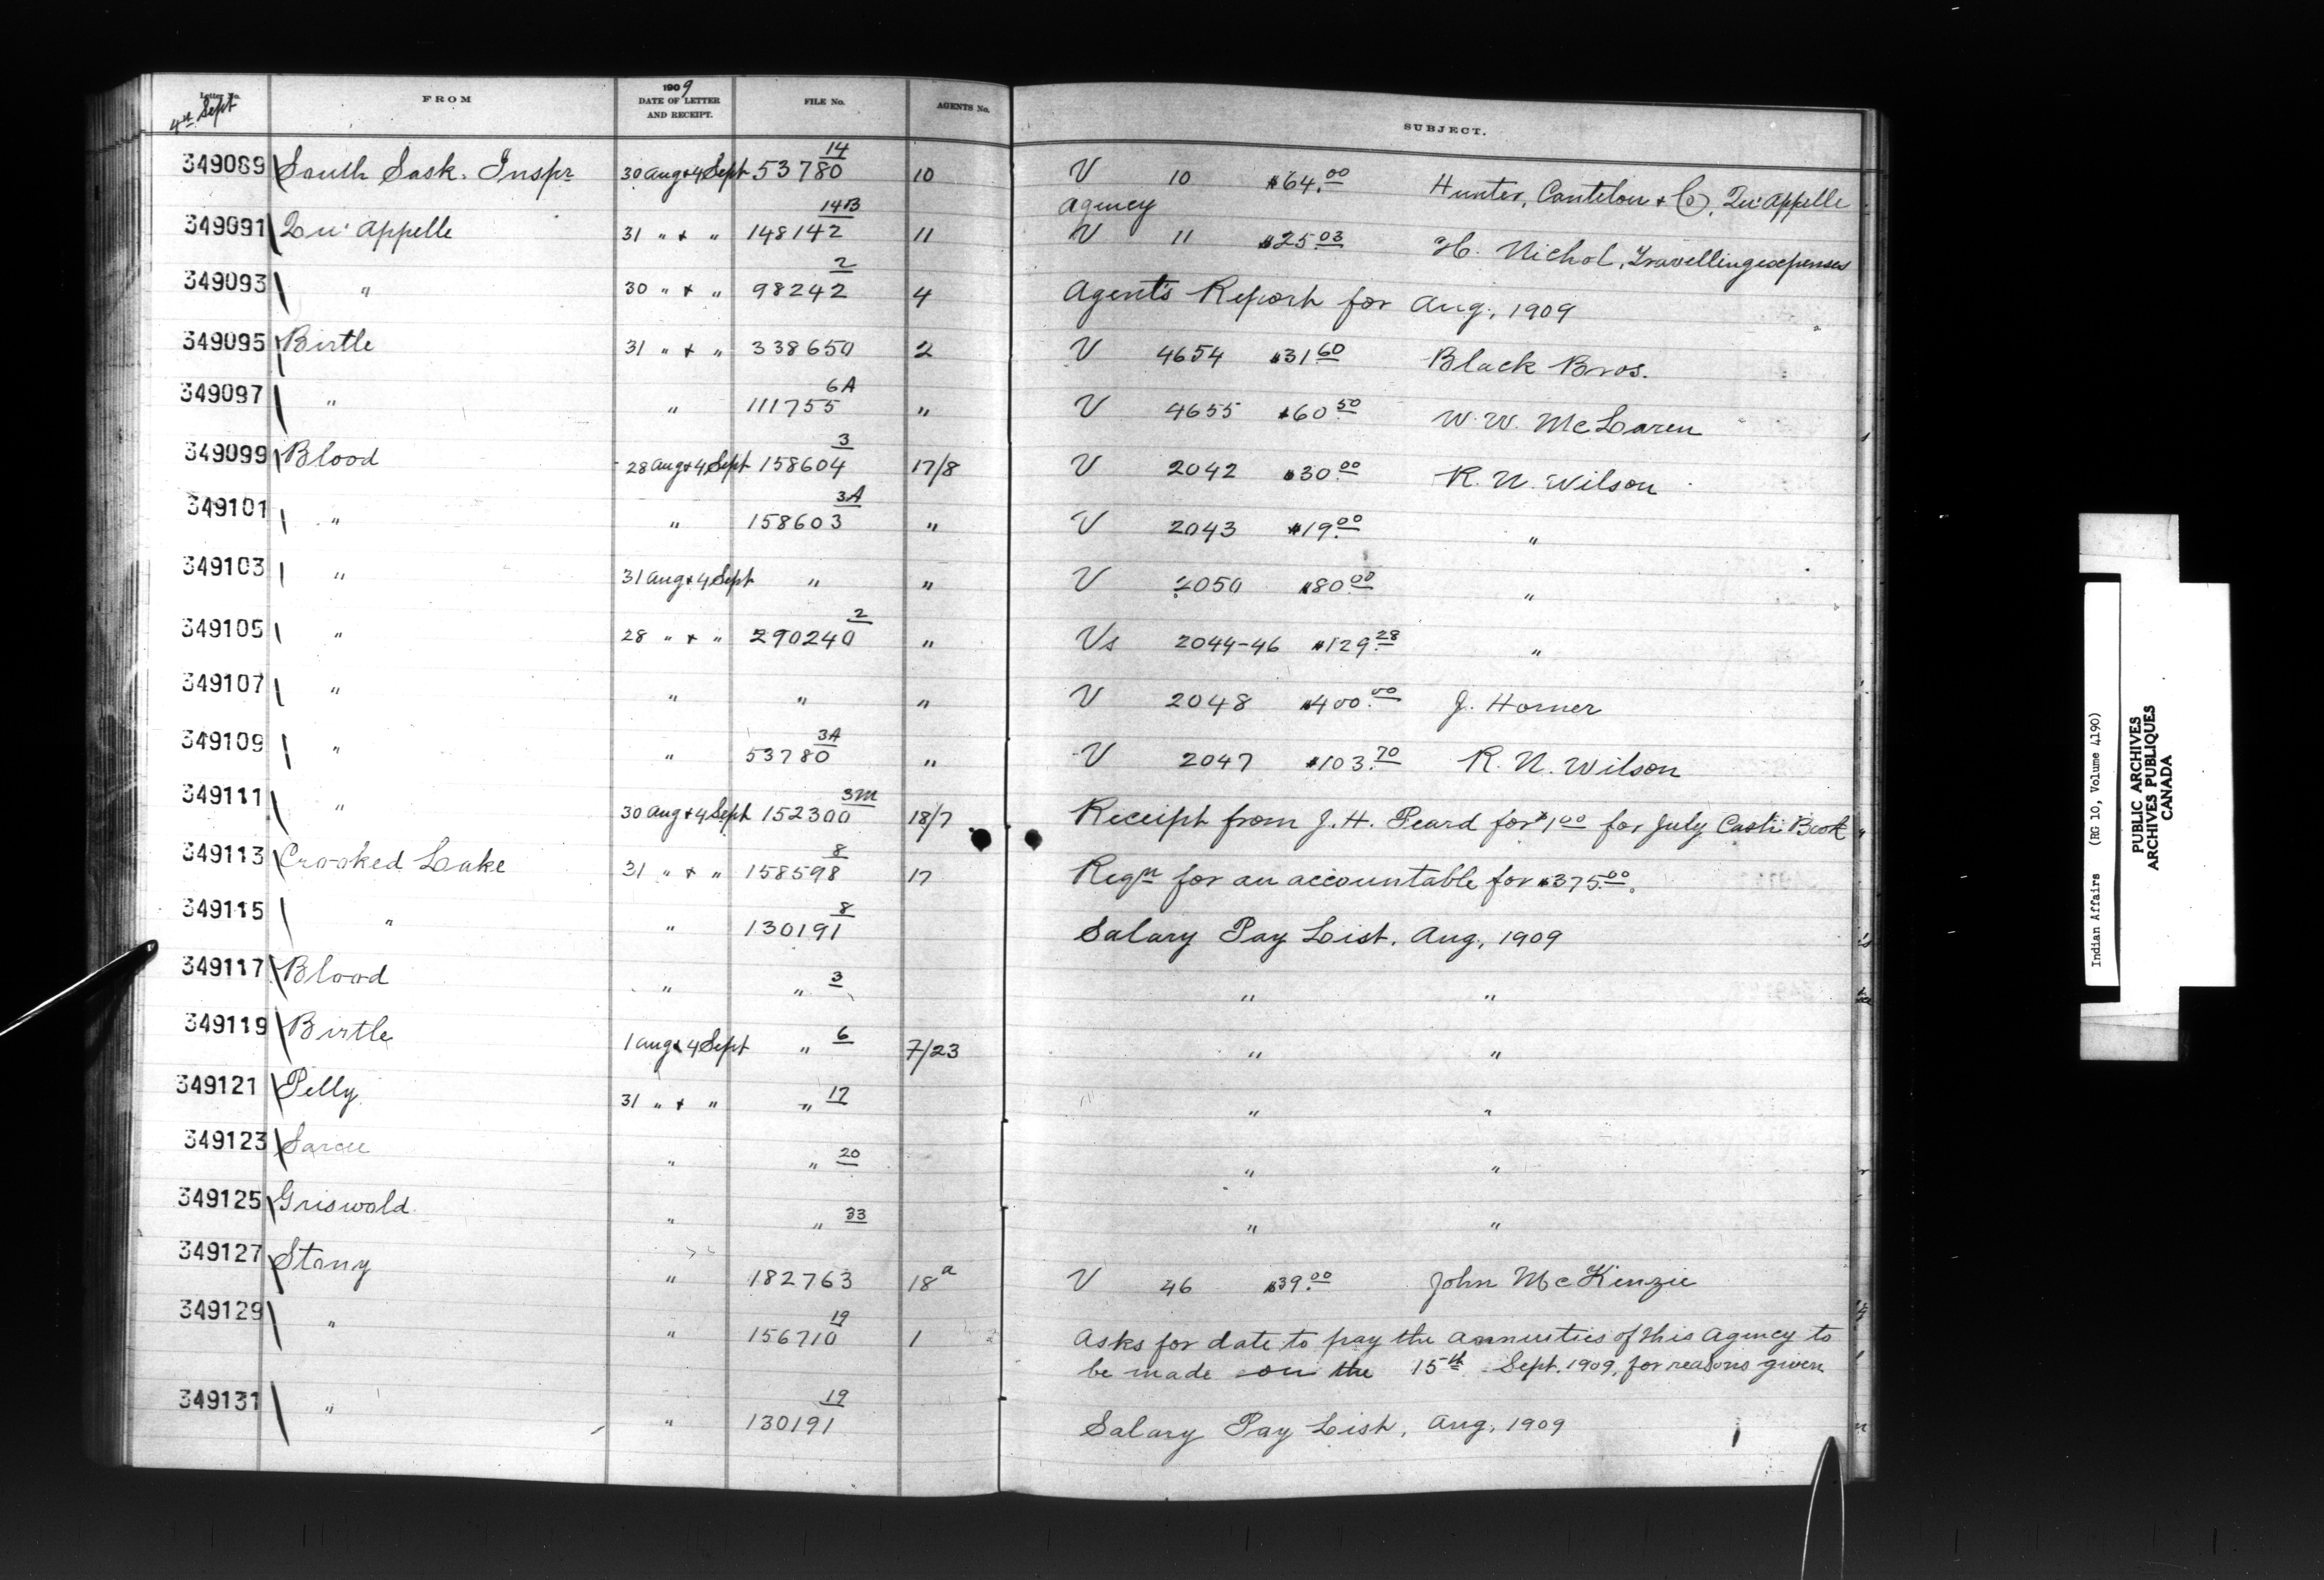 Letter No. FROM 1909 DATE OF LETTER AND RECEIPT. FILE No. AGENTS No. SUBJECT.
4th Sept
349089 South Sask. Inspr 30 Aug & 4 Sept 53780 14 10 V 10 $64.00 Hunter, Cantelon & Co, Qu'Appelle
Agency
349091 Qu'Appelle 31 " & " 148142 14B 11 V 11 $25.03 H. Nichol, Travelling expenses
349093 " 30 " & " 98242 2 4 Agent's Report for Aug, 1909
349095 Birtle 31 " & " 338650 2 V 4654 $31.60 Black Bros.
349097 " " 111755 6A " V 4655 $60.50 W. W. McLaren
349099 Blood 28 Aug & 4 Sept 158604 3 17/8 V 2042 $30.00 R. N. Wilson
349101 " " 158603 3A " V 2043 $19.00 "
349103 " 31 Aug & 4 Sept " " V 2050 $80.00 "
349105 " 28 " & " 290240 2 " Vs 2044-46 $129.28 "
349107 " " " " V 2048 $400.00 J. Horner
349109 " " 53780 3A " V 2047 $103.70 R. N. Wilson
349111 " 30 Aug & 4 Sept 152300 3M 18/7 Receipt from J. H. Peard for $1.00 for July Cash Book
349113 Crooked Lake 31 " & " 158598 8 17 Reqn for an accountable for $375.00.
349115 " " 130191 8 Salary Pay List, Aug, 1909
349117 Blood " " 3 " "
349119 Birtle 1 Aug & 4 Sept " 6 7/23 " "
349121 Pelly 31 " & " " 17 " "
349123 Sarcee " " 20 " "
349125 Griswold " " 33 " "
349127 Stony " 182763 18a V 46 $39.00 John McKenzie
349129 " " 156710 19 1 Asks for date to pay the annuities of this Agency to
be made on the 15th Sept. 1909, for reasons given
349131 " " 130191 19 Salary Pay List, Aug, 1909
Indian Affairs (RG 10, Volume 4190)
PUBLIC ARCHIVES
ARCHIVES PUBLIQUES
CANADA